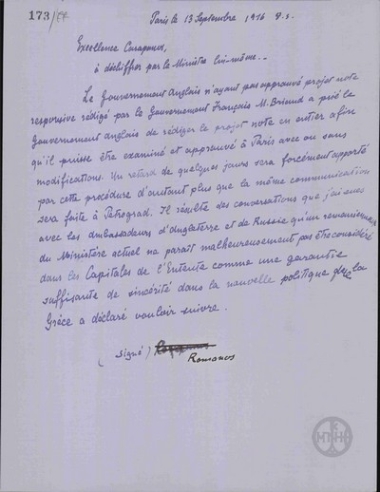 173/
Paris le 13 Septembre 1916 g.s.
Excellence Carapanos,
à déchiffrer par le Ministre lui-même. -
Le Gouvernement Anglais n'ayant pas approuvé projet note
responsive rédigé par le Gouvernement Français M. Briand a prié le
Gouvernement Anglais de rédiger le projet note en entier afin
qu'il puisse être examiné et approuvé à Paris avec ou sans
modifications. Un retard de quelques jours sera forcément apporté
par cette procédure d'autant plus que la même communication
sera faite à Petrograd. Il résulte des conversations que j'ai eues
avec les Ambassadeurs d'Angleterre et de Russie qu'un remaniement
du Ministère actuel ne paraît malheureusement pas être considéré
dans les Capitales de l'Entente comme une garantie
suffisante de sincérité dans la nouvelle politique que la
Grèce a déclaré vouloir suivre.
(signé)
Romanos